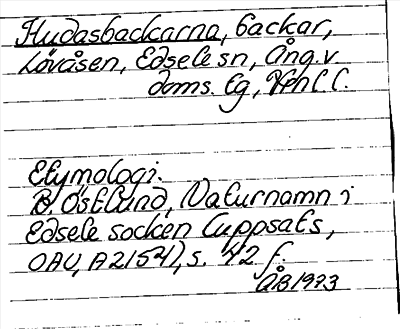 Fludasbackarna, backar,
Lövåsen, Edsele sn, Ång. v.
doms. lg, Vfnl l.
Etymologi:
B. Östlund, Naturnamn i
Edsele socken (uppsats,
OAU, A21541), s. 42 f.
ÅB 1973